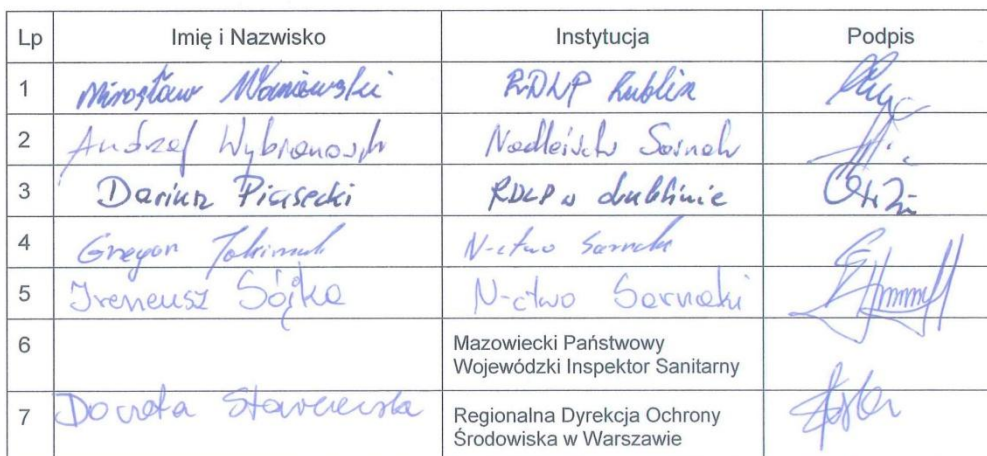 Lp Imię i Nazwisko Instytucja Podpis
1 Mirosław RDLP Lublin
2 Andrzej Sarnaki
3 Dariusz Piasecki RDLP w Lublinie
4 N-ctwo Sarnaki
5 Ireneusz Sójka N-ctwo Sarnaki
6 Mazowiecki Państwowy
Wojewódzki Inspektor Sanitarny
7 Dorota Regionalna Dyrekcja Ochrony
Środowiska w Warszawie